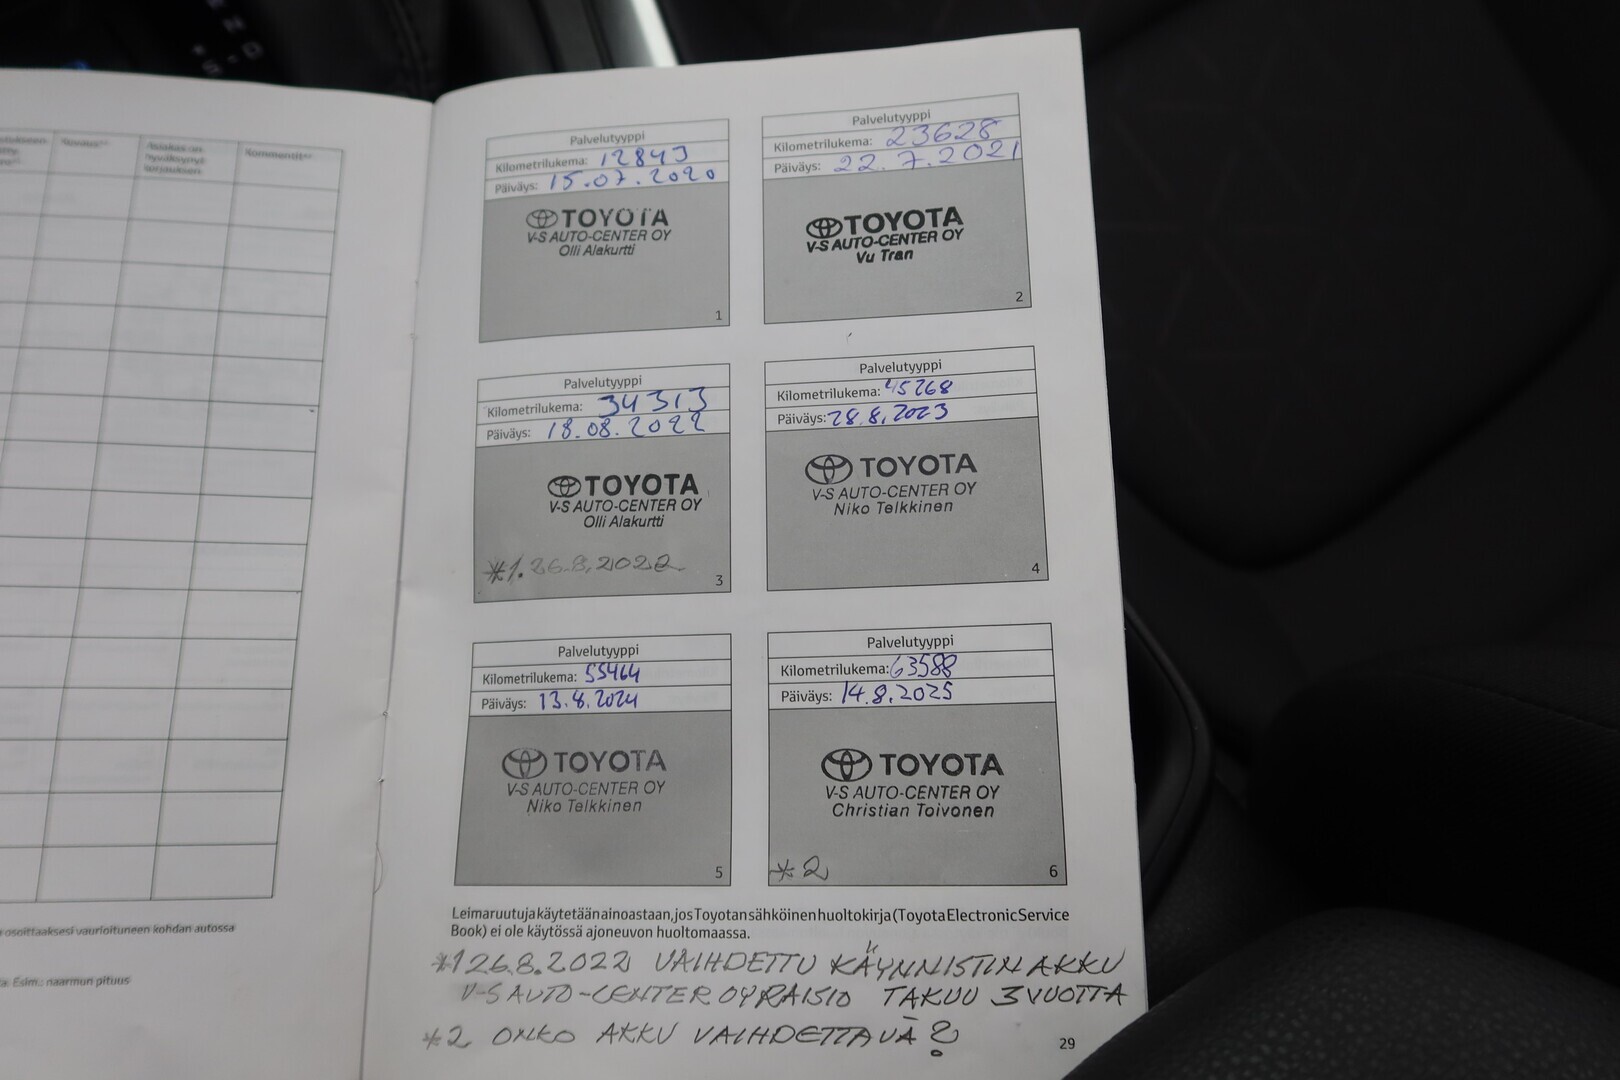 R
N
D
+
S -
Kommentit**
osoittaaksesi vaurioituneen kohdan autossa
Esim.: naarmun pituus
Palvelutyyppi
Kilometrilukema: 12843
Päiväys: 15.07.2020
TOYOTA
V-S AUTO-CENTER OY
Olli Alakurtti
1
Palvelutyyppi
Kilometrilukema: 23628
Päiväys: 22.7.2021
TOYOTA
V-S AUTO-CENTER OY
Vu Tran
2
Palvelutyyppi
Kilometrilukema: 34313
Päiväys: 18.08.2022
TOYOTA
V-S AUTO-CENTER OY
Olli Alakurtti
*1. 26.8.2022
3
Palvelutyyppi
Kilometrilukema: 45268
Päiväys: 28.8.2023
TOYOTA
V-S AUTO-CENTER OY
Niko Telkkinen
4
Palvelutyyppi
Kilometrilukema: 55464
Päiväys: 13.8.2024
TOYOTA
V-S AUTO-CENTER OY
Niko Telkkinen
5
Palvelutyyppi
Kilometrilukema: 63588
Päiväys: 14.8.2025
TOYOTA
V-S AUTO-CENTER OY
Christian Toivonen
*2
6
Leimaruutuja käytetään ainoastaan, jos Toyotan sähköinen huoltokirja (Toyota Electronic Service
Book) ei ole käytössä ajoneuvon huoltomaassa.
*1 26.8.2022 VAIHDETTU KÄYNNISTIN AKKU
V-S AUTO-CENTER OY RAISIO TAKUU 3 VUOTTA
*2 ONKO AKKU VAIHDETTAVÄ?
29